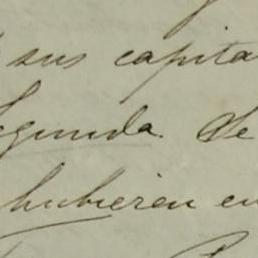 sus capita
Segunda. Se
hubieren en